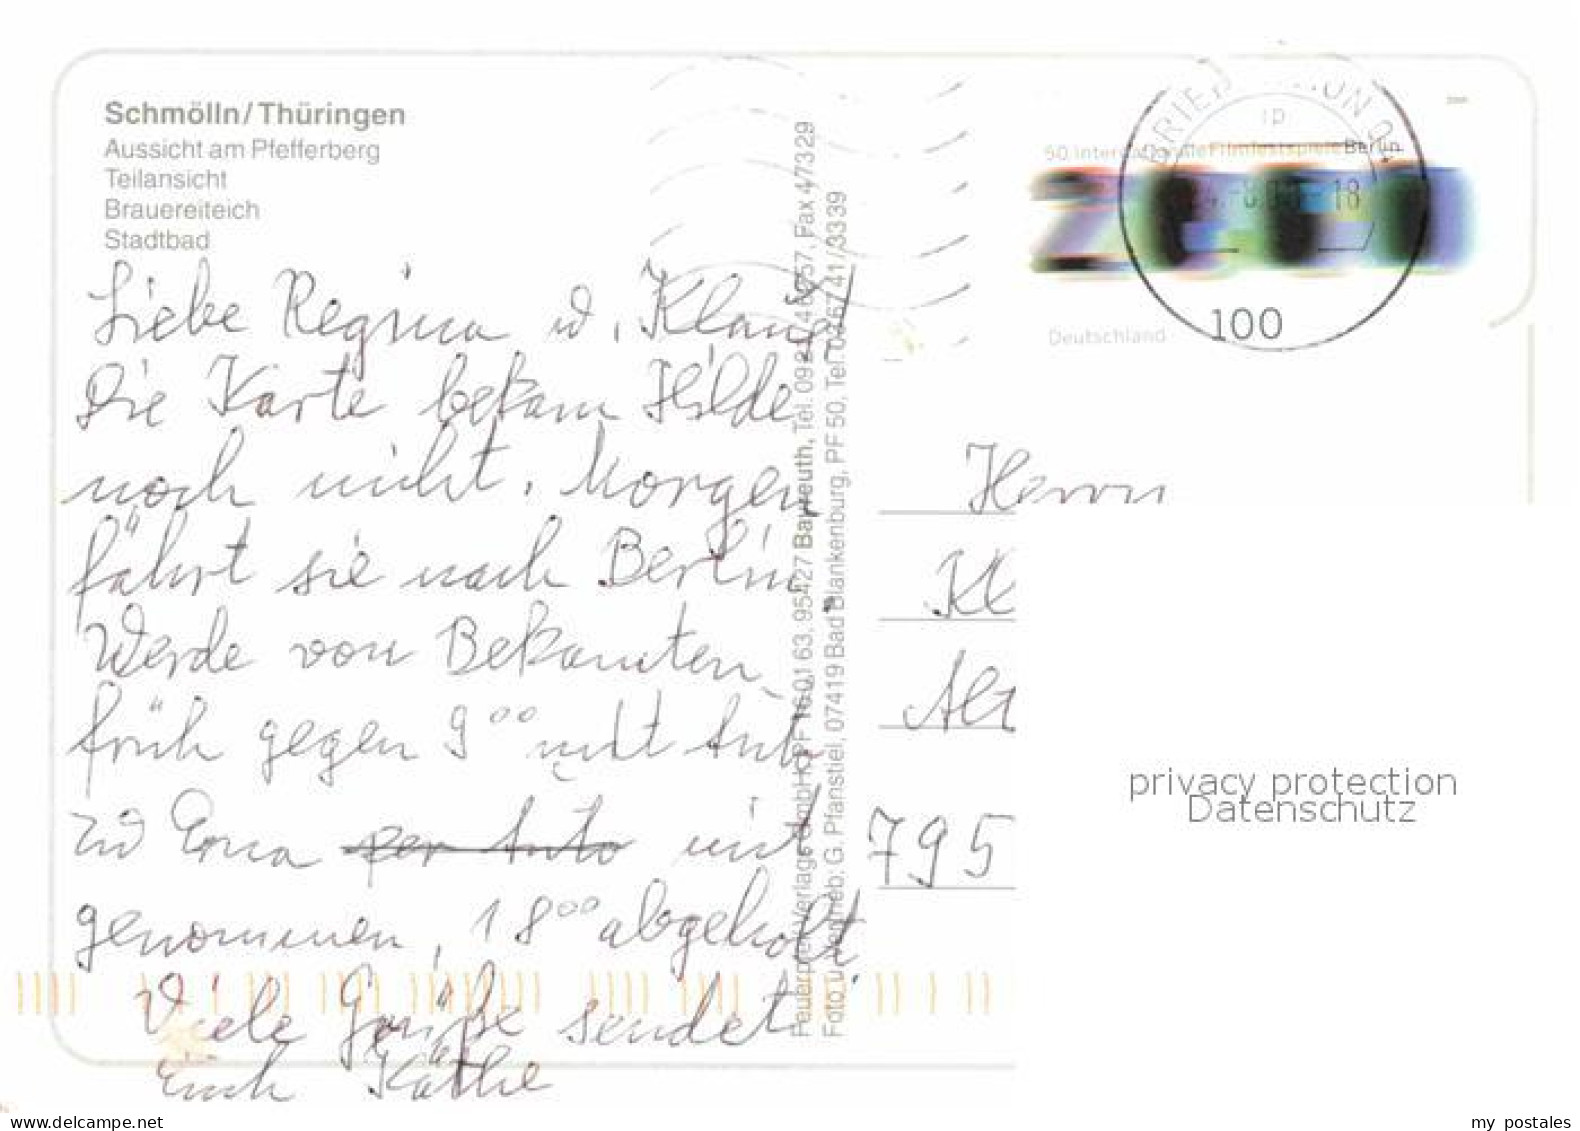 Schmölln/Thüringen
Aussicht am Pfefferberg
Teilansicht
Brauereiteich
Stadtbad
Liebe Regina u. Klaus!
Die Karte bekam Hilde
noch nicht. Morgen
fährt sie nach Berlin.
Werde von Bekannten
früh gegen 9⁰⁰ mit Auto
zu Erna per Auto mit
genommen, 18⁰⁰ abgeholt
Viele Grüße sendet
Euch Käthe
Feuerpfeil Verlags GmbH, PF 160163, 95427 Bayreuth, Tel. Fax 47329
Foto u. Vertrieb: G. Pfanstiel, 07419 Bad Blankenburg, PF 50, Tel. 036741/3339
50 Internationale Filmfestspiele Berlin
Deutschland
18
100
Herrn
Kl
Alt
795
privacy protection
Datenschutz
www.delcampe.net
my_postales